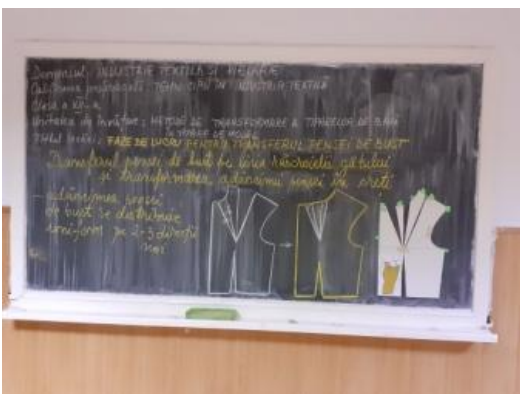 Domeniul: INDUSTRIE TEXTILĂ ȘI PIELĂRIE
Calificarea profesională: TEHNICIAN ÎN INDUSTRIA TEXTILĂ
Clasa a XII-a
Unitatea de învățare: METODE DE TRANSFORMARE A TIPARELOR DE BAZĂ
ÎN TIPARE DE MODEL
Titlul lecției: "FAZE DE LUCRU PENTRU TRANSFERUL PENSEI DE BUST"
Transferul pensei de bust pe linia răscroielii gâtului
și transformarea adâncimii pensei în creți
- adâncimea pensei
de bust se distribuie
uniform pe 2-3 direcții
noi